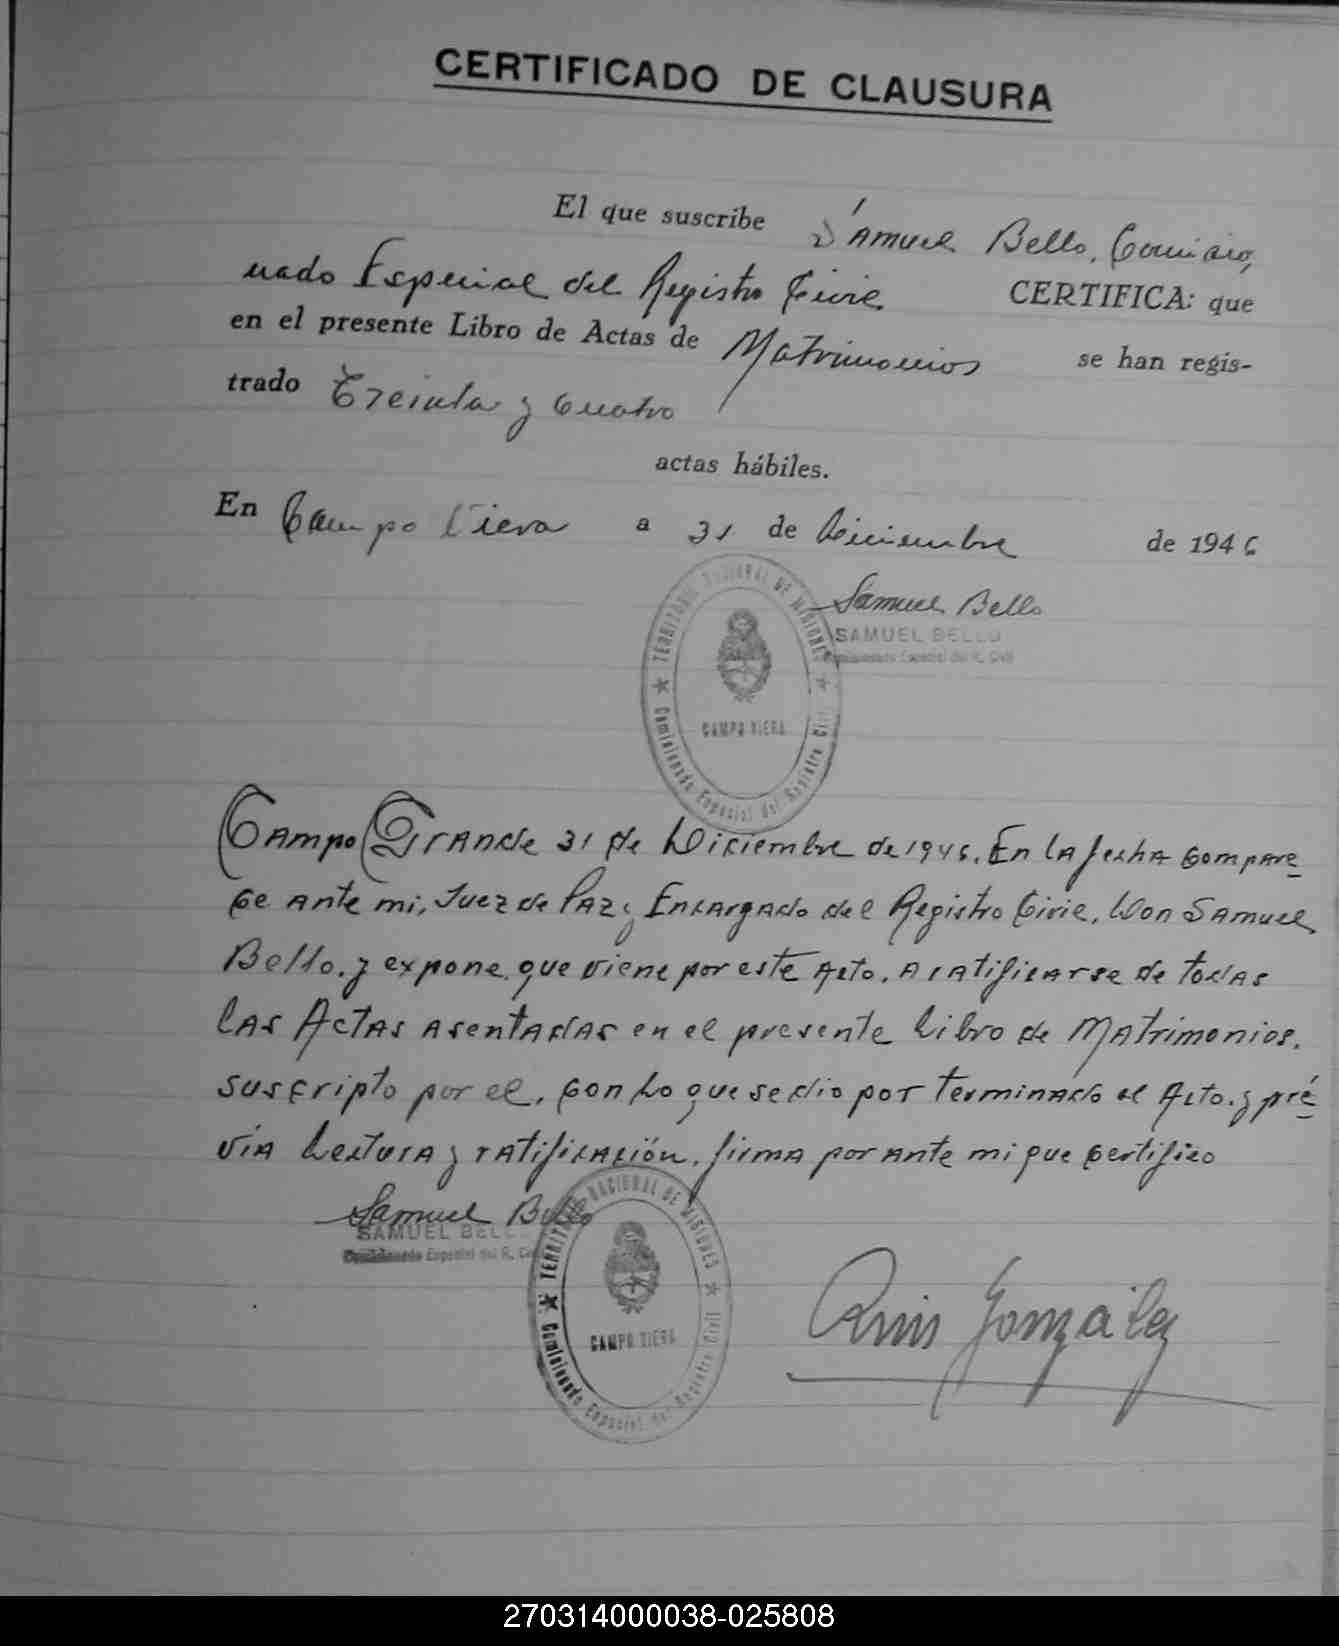 CERTIFICADO DE CLAUSURA
El que suscribe Samuel Bello, Comisio,
nado Especial del Registro Civil CERTIFICA: que
en el presente Libro de Actas de Matrimonios se han regis-
trado Treinta y Cuatro
actas hábiles.
En Campo Viera a 31 de Diciembre de 1946
Samuel Bello
SAMUEL BELLO
Comisionado Especial del R. Civil
TERRITORIO NACIONAL DE MISIONES
CAMPO VIERA
Comisionado Especial del Registro Civil
Campo Grande 31 de Diciembre de 1946. En la fecha compare
ce ante mi, Juez de Paz y Encargado del Registro Civil, Don Samuel
Bello. y expone que viene por este Acto. a ratificarse de todas
las Actas asentadas en el presente Libro de Matrimonios.
suscripto por el, con lo que se dio por terminado el Acto. y pré
vía Lectura y ratificación, firma por ante mi que certifico
Samuel Bello
SAMUEL BELLO
Comisionado Especial del R. Civil
TERRITORIO NACIONAL DE MISIONES
CAMPO VIERA
Comisionado Especial del Registro Civil
González
270314000038-025808